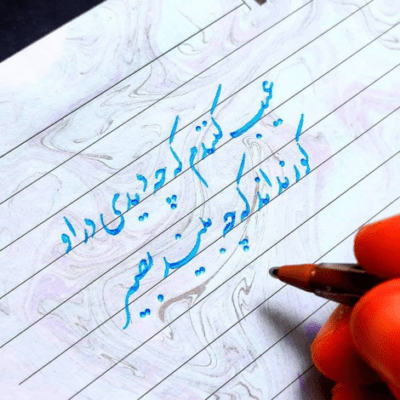 عیب کنندم که چه دیدی در او
کور نداند که چه بیند بصیر